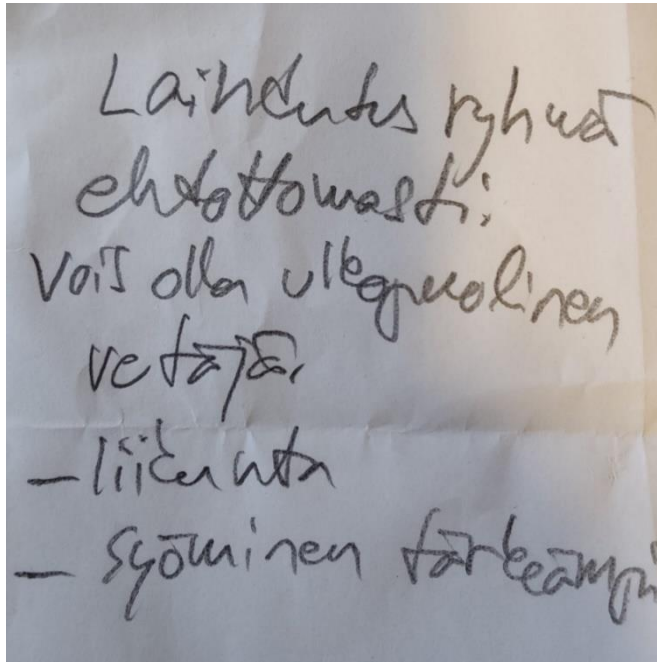 Laihdutus ryhmä
ehdottomasti.
Vois olla ulkopuolinen
vetäjä.
- liikunta
- syöminen tärkeämpi